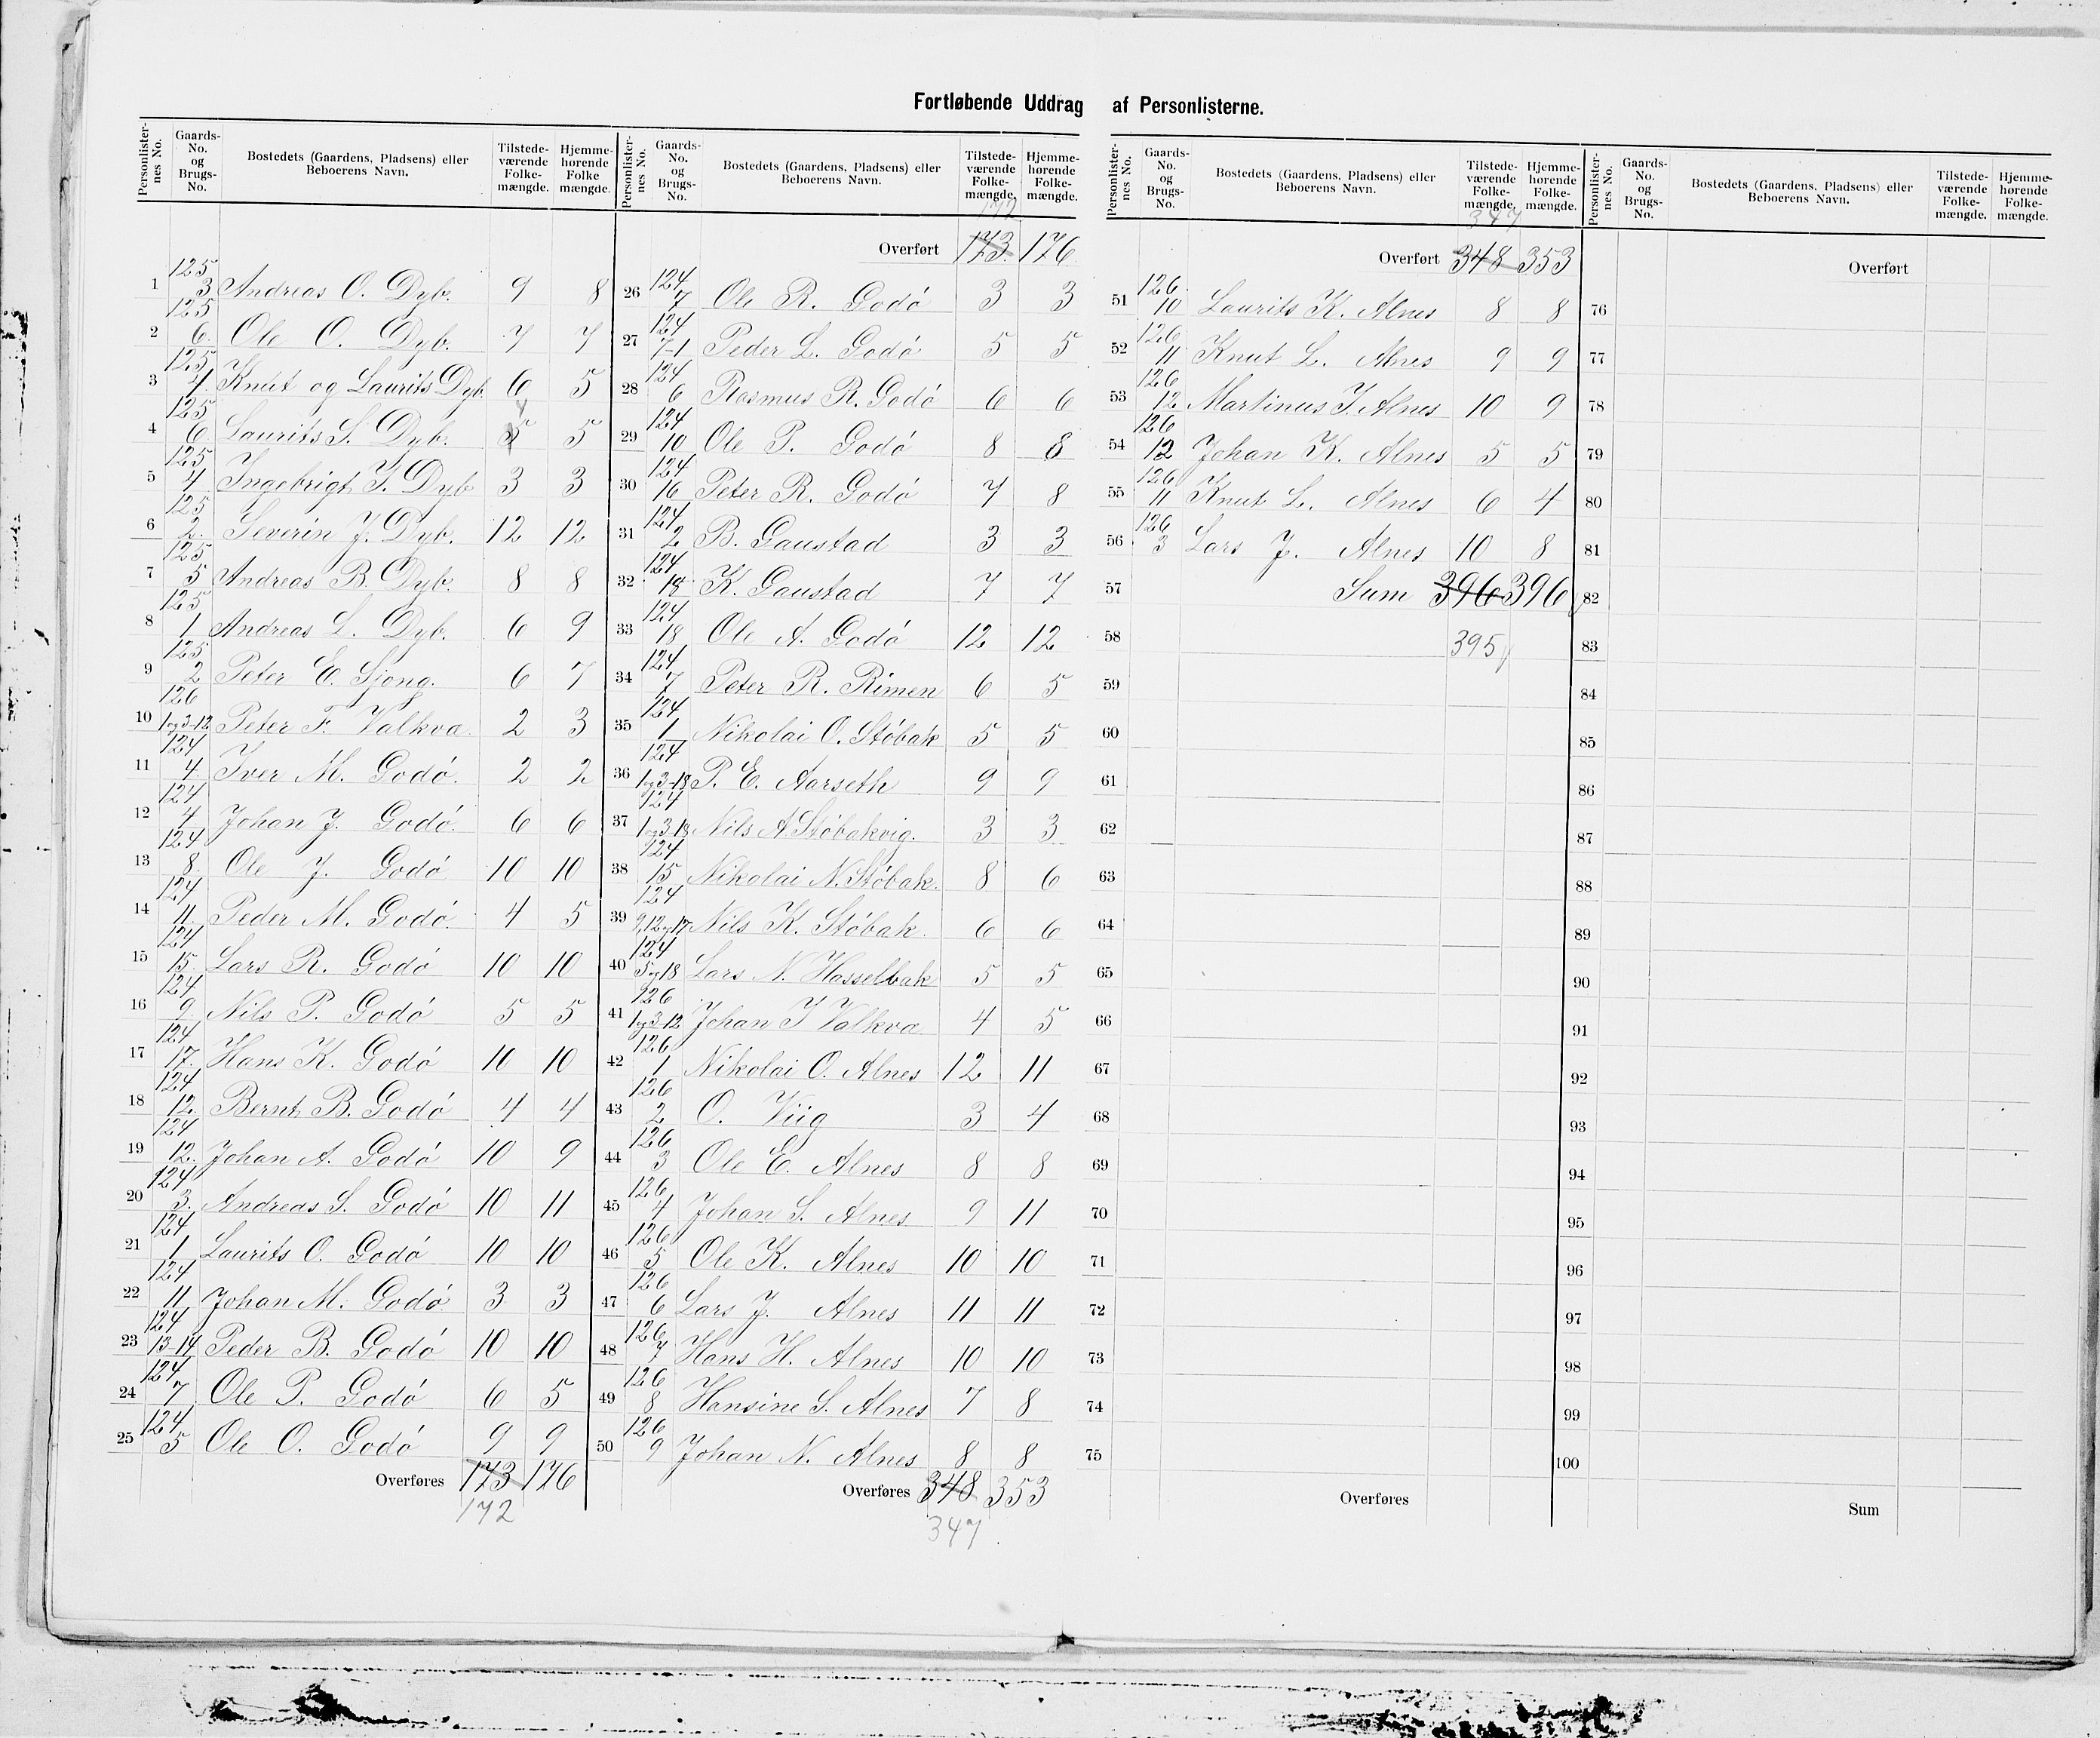 Fortløbende Uddrag af Personlisterne.
Personlister-nes No. Gaards-No. og Brugs-No. Bostedets (Gaardens, Pladsens) eller Beboerens Navn. Tilstede-værende Folke-mængde. Hjemme-hørende Folke mængde.
1 125 3 Andreas O. Dyb. 9 8
2 125 6. Ole O. Dyb. 7 7
3 125 1. Knut og Laurits Dyb. 6 5
4 125 6 Laurits S. Dyb. 5 4 5
5 125 4 Ingebrigt I. Dyb 3 3
6 125 2. Severin J. Dyb. 12 12
7 125 5 Andreas B. Dyb. 8 8
8 125 1 Andreas L. Dyb. 6 9
9 125 2 Peter E. Sjong. 6 7
10 126 1 og 3-12 Peter F. Valkva. 2 3
11 124 4. Iver M. Godö. 2 2
12 124 4 Johan J. Godö. 6 6
13 124 8. Ole J. Godö 10 10
14 124 11. Peder M. Godö. 4 5
15 124 15. Lars R. Godö 10 10
16 124 9. Nils P. Godö 5 5
17 124 17. Hans K. Godö 10 10
18 124 12. Bernt B. Godö 4 4
19 124 12. Johan A. Godö 10 9
20 124 3. Andreas S. Godö 10 11
21 124 1 Laurits O. Godö 10 10
22 124 11 Johan M. Godö 3 3
23 124 13-14 Peder B. Godö 10 10
24 124 7 Ole P. Godö 6 5
25 124 5 Ole O. Godö 9 9
Overføres 173 176
172
Personlister-nes No. Gaards-No. og Brugs-No. Bostedets (Gaardens, Pladsens) eller Beboerens Navn. Tilstede-værende Folke-mængde. Hjemme-hørende Folke-mængde.
172
Overført 173. 176
26 124 7 Ole R. Godö 3 3
27 124 7-1 Peder L. Godö 5 5
28 124 6 Rasmus R. Godö 6 6
29 124 10 Ole P. Godö 8 8
30 124 16 Peter R. Godö 7 8
31 124 2 B. Gaustad 3 3
32 124 18 K. Gaustad 7 7
33 124 18 Ole A. Godö 12 12
34 124 7 Peter R. Rimen 6 5
35 124 1 Nikolai O. Stöbak 5 5
36 124 1 og 3-18 P. E. Aarseth 9 9
37 124 1 og 3-18 Nils A Stöbakvig. 3 3
38 124 15 Nikolai N. Stöbak. 8 6
39 124 9,12 og 17 Nils K. Stöbak. 6 6
40 124 5 og 18 Lars N. Hasselbak 5 5
41 126 1 og 3-12 Johan I Valkva 4 5
42 126 1 Nikolai O. Alnes 12 11
43 126 2 O. Viig 3 4
44 126 3 Ole E. Alnes 8 8
45 126 4 Johan S. Alnes 9 11
46 126 5 Ole K. Alnes 10 10
47 126 6 Lars J. Alnes 11 11
48 126 7 Hans H. Alnes 10 10
49 126 8 Hansine S. Alnes 7 8
50 126 9 Johan N. Alnes 8 8
Overføres 348 353
347
Personlister-nes No. Gaards-No. og Brugs-No. Bostedets (Gaardens, Pladsens) eller Beboerens Navn. Tilstede-værende Folke-mængde. Hjemme-hørende Folke-mængde.
347
Overført 348 353
51 126. 10 Laurits K. Alnes 8 8
52 126 11 Knut L. Alnes 9 9
53 126 12 Martinus J. Alnes 10 9
54 126 12 Johan K. Alnes 5 5
55 126 11 Knut L. Alnes 6 4
56 126 3 Lars J. Alnes 10 8
57 Sum 396 396
58 395
59
60
61
62
63
64
65
66
67
68
69
70
71
72
73
74
75
Overføres
Personlister-nes No. Gaards-No. og Brugs-No. Bostedets (Gaardens, Pladsens) eller Beboerens Navn. Tilstede-værende Folke-mængde. Hjemme-hørende Folke-mængde.
Overført
76
77
78
79
80
81
82
83
84
85
86
87
88
89
90
91
92
93
94
95
96
97
98
99
100
Sum